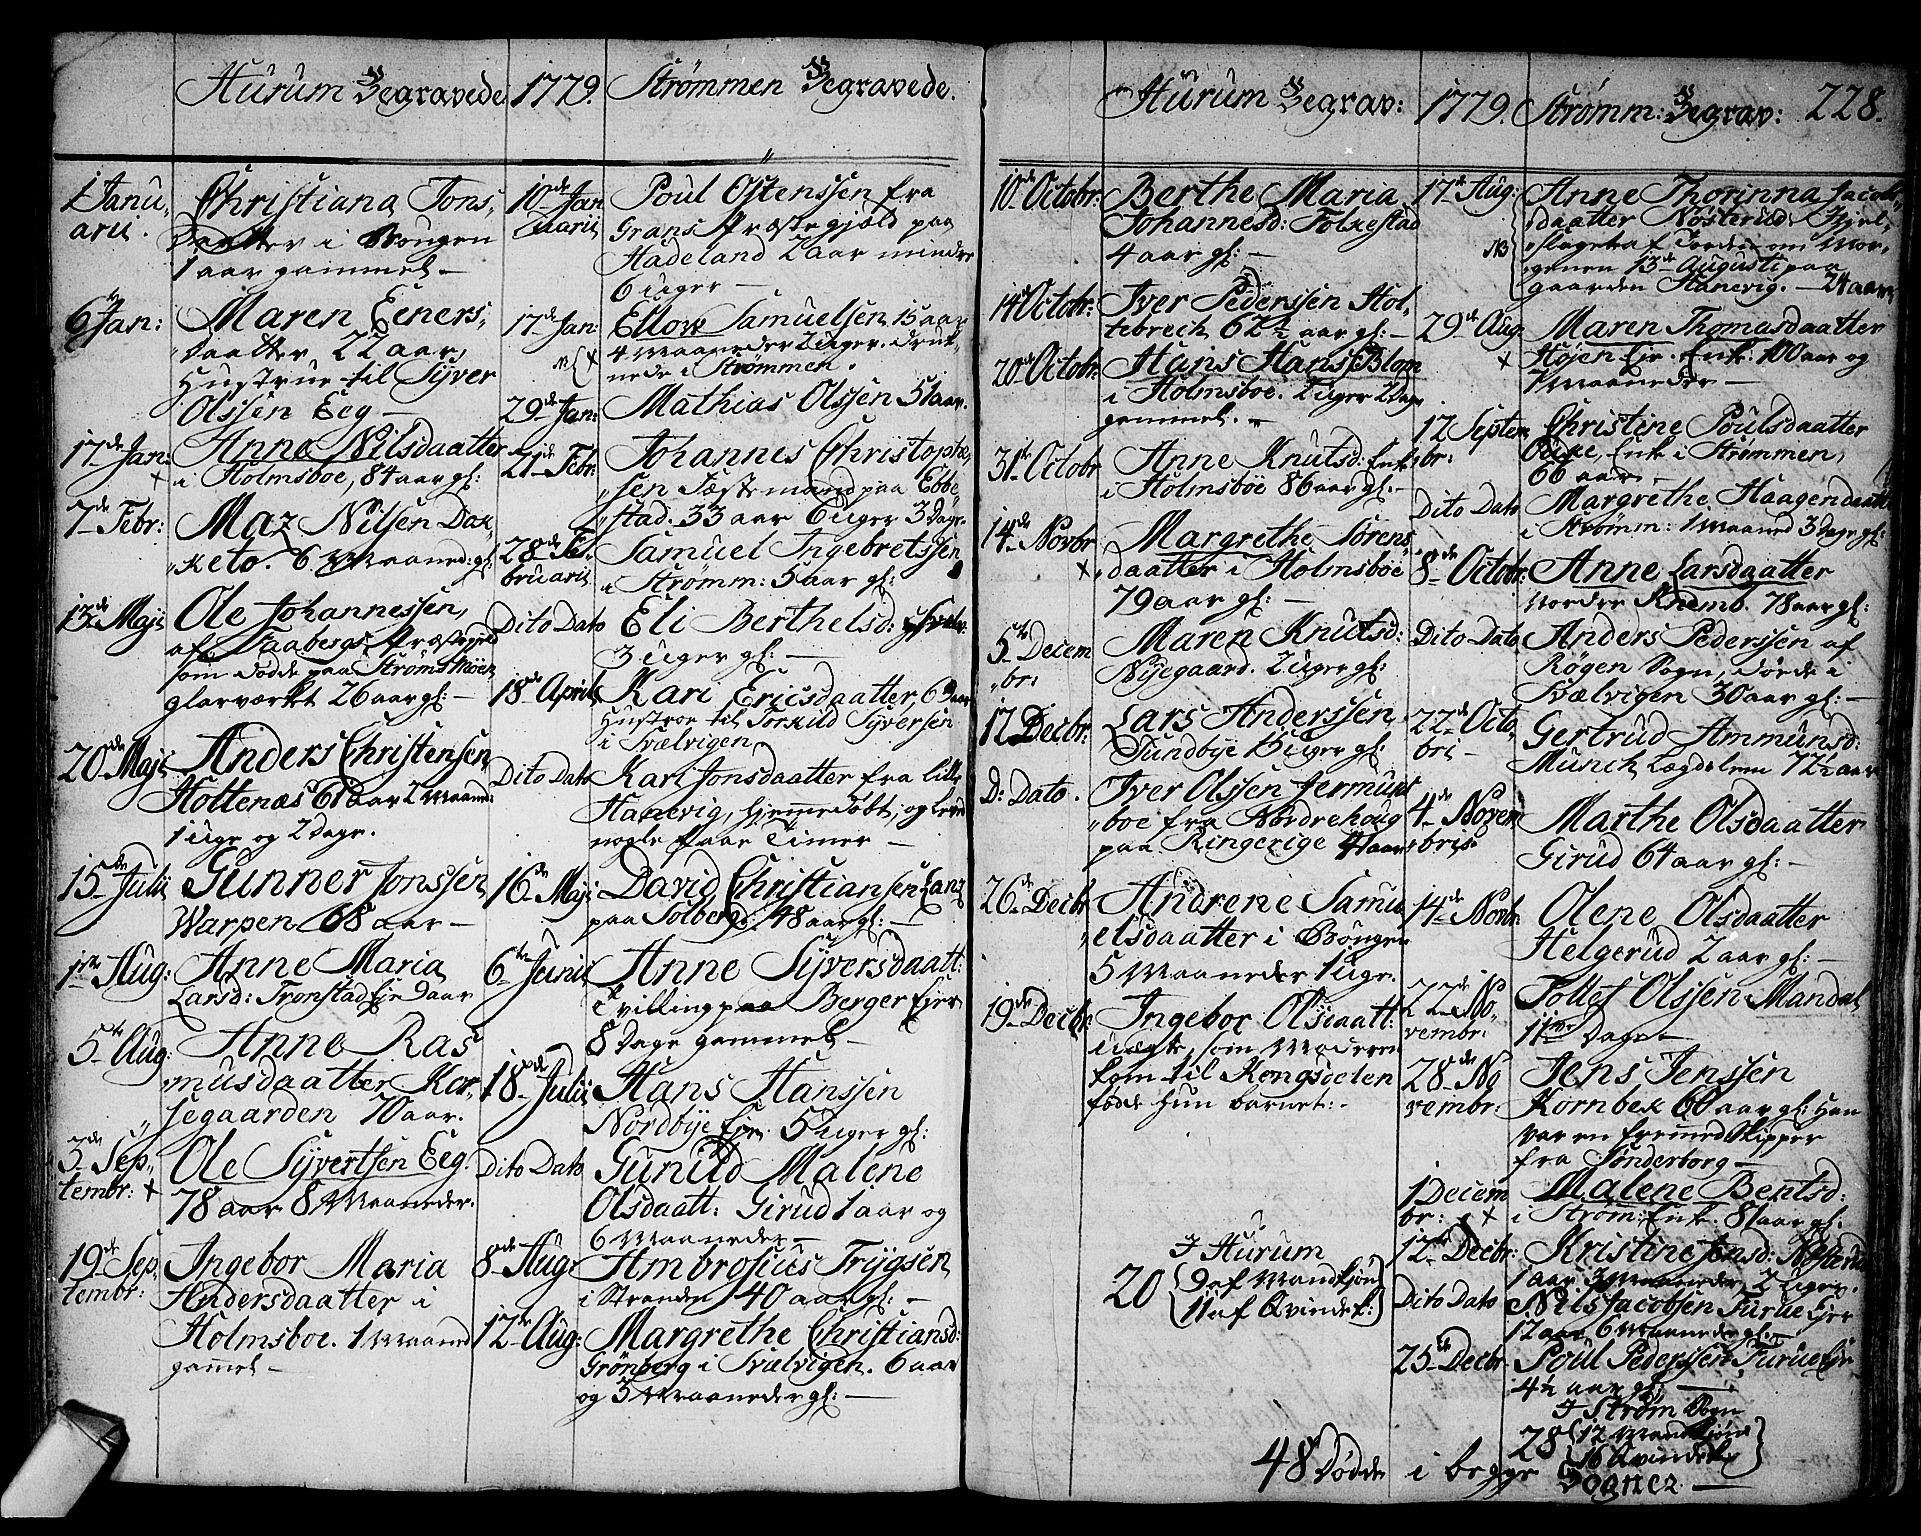 Hurum Begravede
1779.
Strømmen Begravede.
1 Janu„
arii.
Christiana Jons„
daatter i Bougen
1 aar gammel —
6te Jan:
Maren Eeners„
„daatter, 22 aar,
Hustrue til Syver
Olssen Eeg —
17de Jan:
+
Anne Nilsdaatter
i Holmsboe, 84 aar gl:
7de Febr:
Maz Nilsen Dax
„keto. 6 Maaned: gl:
13de Maji
Ole Johannessen,
af Faabergs Præstegield
som døde paa Strøms Møen
glarværket 26 aar gl: —
20de Maji
Anders Christensen
Holtenæs 61 aar 2 Maaned:
1 uge og 2 Dage.
15de Julii
Gunner Jonssen
Warpen 68 aar —
1ste Aug:
Anne Maria
Larsd: Tronstad Eje Daar
5te Aug:
Anne Ras
„musdaatter Kor„
„segaarden 70 aar.
3de Sep„
tembr: +
Ole Syvertsen Eeg.
78 aar 8 Maaneder.
19de Sep„
tembr:
Ingebor Maria
Andersdaatter i
Holmsboe. 1 Maaned
gamel —
10de Jan
uarii
Poul Ostenssen fra
Grans Præstegjæld paa
Hadeland 2 aar mindre
6 Uger —
17de Jan:
+
Ellov Samuelsen 15 aar
4 Maaneder 2 Uger. druk„
nede i Strømmen.
29de Jan:
Mathias Olssen 51 aar.
21de Febr:
Johannes Christophe„
„sen Fæstemand paa Ebbe„
„stad. 33 aar 6 Uger 3 Dage.
28de Fe„
bruarii
Samuel Ingebretssen
i Strømm: 5 aar gl:
Dito Dato
Eli Berthelsd:
3 Uger gl: —
18de April
Kari Ericsdaatter,
Hustroe til Torkild Syversen
i Svælvigen
Dito Dato
Kari Jonsdaatter fra lille
Hanevig, hjemmedøbt, og levede
nogle faar Timer —
16de Maji
David Christiansen Lanz
paa Solberg: 48 aar gl: —
6te Junii
Anne Syversdaatt:
Tvilling paa Berger Ejer
8 Dage gammel —
18de Julii
Hans Hanssen
Nordbye Eje. 5 Uger gl:
Dito Dato
Gunild Malene
Olsdaatt: Girud 1 aar og
6 Maaneder —
8de Aug:
Ambrosius Trygsen
i Stranden 40 aar gl: —
12te Aug:
Margrethe Christiansd:
Grönberg i Svælvigen. 6 aar
og 3 Maaneder gl: —
Hurum Begrav:
1779.
Strømm: Begrav:
228.
10de Octobr:
Berthe Maria
Johannesd: Folkestad
4 aar gl: —
14de Octobr:
Iver Pederssen Hol„
tebrech, 62½ aar gl: —
20de Octobr:
Hans Hans: Blom
i Holmsboe. 2 Uger 2 Dage
gammel. —
31te Octobr
Anne Knutsd: Enke
i Holmsböe 86 aar gl: —
14de Novbr
+
Margrethe Sörens„
„daatter i Holmsboe
79 aar gl: —
5te Decem
„br:
Maren Knutsd:
Nyegaard. 2 Uger gl:
12 Decbr:
Lars Anderssen
Sundbye 15 Uger gl:
D: Dato.
Iver Olssen Jermunt
„boe fra Nordrehoug
paa Ringerige 41 aar
26de Decbr
Andrene Samu
„elsdaatter i Bongen
5 Maaneder 1 Uge.
19de Decbr.
Ingebor Olsdaatt:
uægte, som Moderen
kom til Kongsdelen
fødde hun barnet: —
I Hurum
20 {9 af Mandkjøn
11 af Qvindek:}
17de Aug:
NB
Anne Thorinna Jacobs„
„daatter Nosterud, Ihjel„
„slagen af Torden om Mor„
„genen 13de Augusti paa
gaarden Hanevig. — 24 aar
29de Aug.
+
Maren Thomasdaatter
Højen Eje. Enke: 100 aar og
7 Maaneder —
12 Septem
br:
Christine Poulsdaatter
Enke i Strømmen,
66 aar.
Dito Dato
Margrethe Haagendaatt
i Strømm: 1 Maaned 3 Dage gl:
8de Octobr:
Anne Larsdaatter
Norder Knemb. 78 aar gl:
Dito Dato
Anders Pederssen af
Røgen Sogn, døde i
Svælvigen 30 aar gl: —
22de Octo„
bri —
Gertrud Ammunsd:
Munch Lægdelem 72½ aar
4de Novem
bris
Marthe Olsdaatter
Girud 64 aar gl: —
14de Novbr:
Olene Olsdaatter
Helgerud 2 aar gl: —
22de No
vembr:
Tollef Olssen Mandal
11ve Dage —
28de No
vembr:
Jens Jenssen
Kornbek 60 aar gl: Han
var en fremmed Skipper
fra Sønderborg —
1 Decem
br: +
Malene Bentsd:
i Strøm: Enke. 81 aar gl:
12te Decbr:
Kristine Jensd: Nosterud
1 aar 3 Maaneder, 2 Uger.
Dito Dato
Nils Jacobsen Turue Ejer
12 aar 6 Maaneder gl: —
25de Decbr.
Poul Pederssen Turue Eje
4½ aar gl: —
I Strøm Sogn
28 {12 Mandkjøn
16 Qvindek:}
48 Dödde i begge Sogner. —